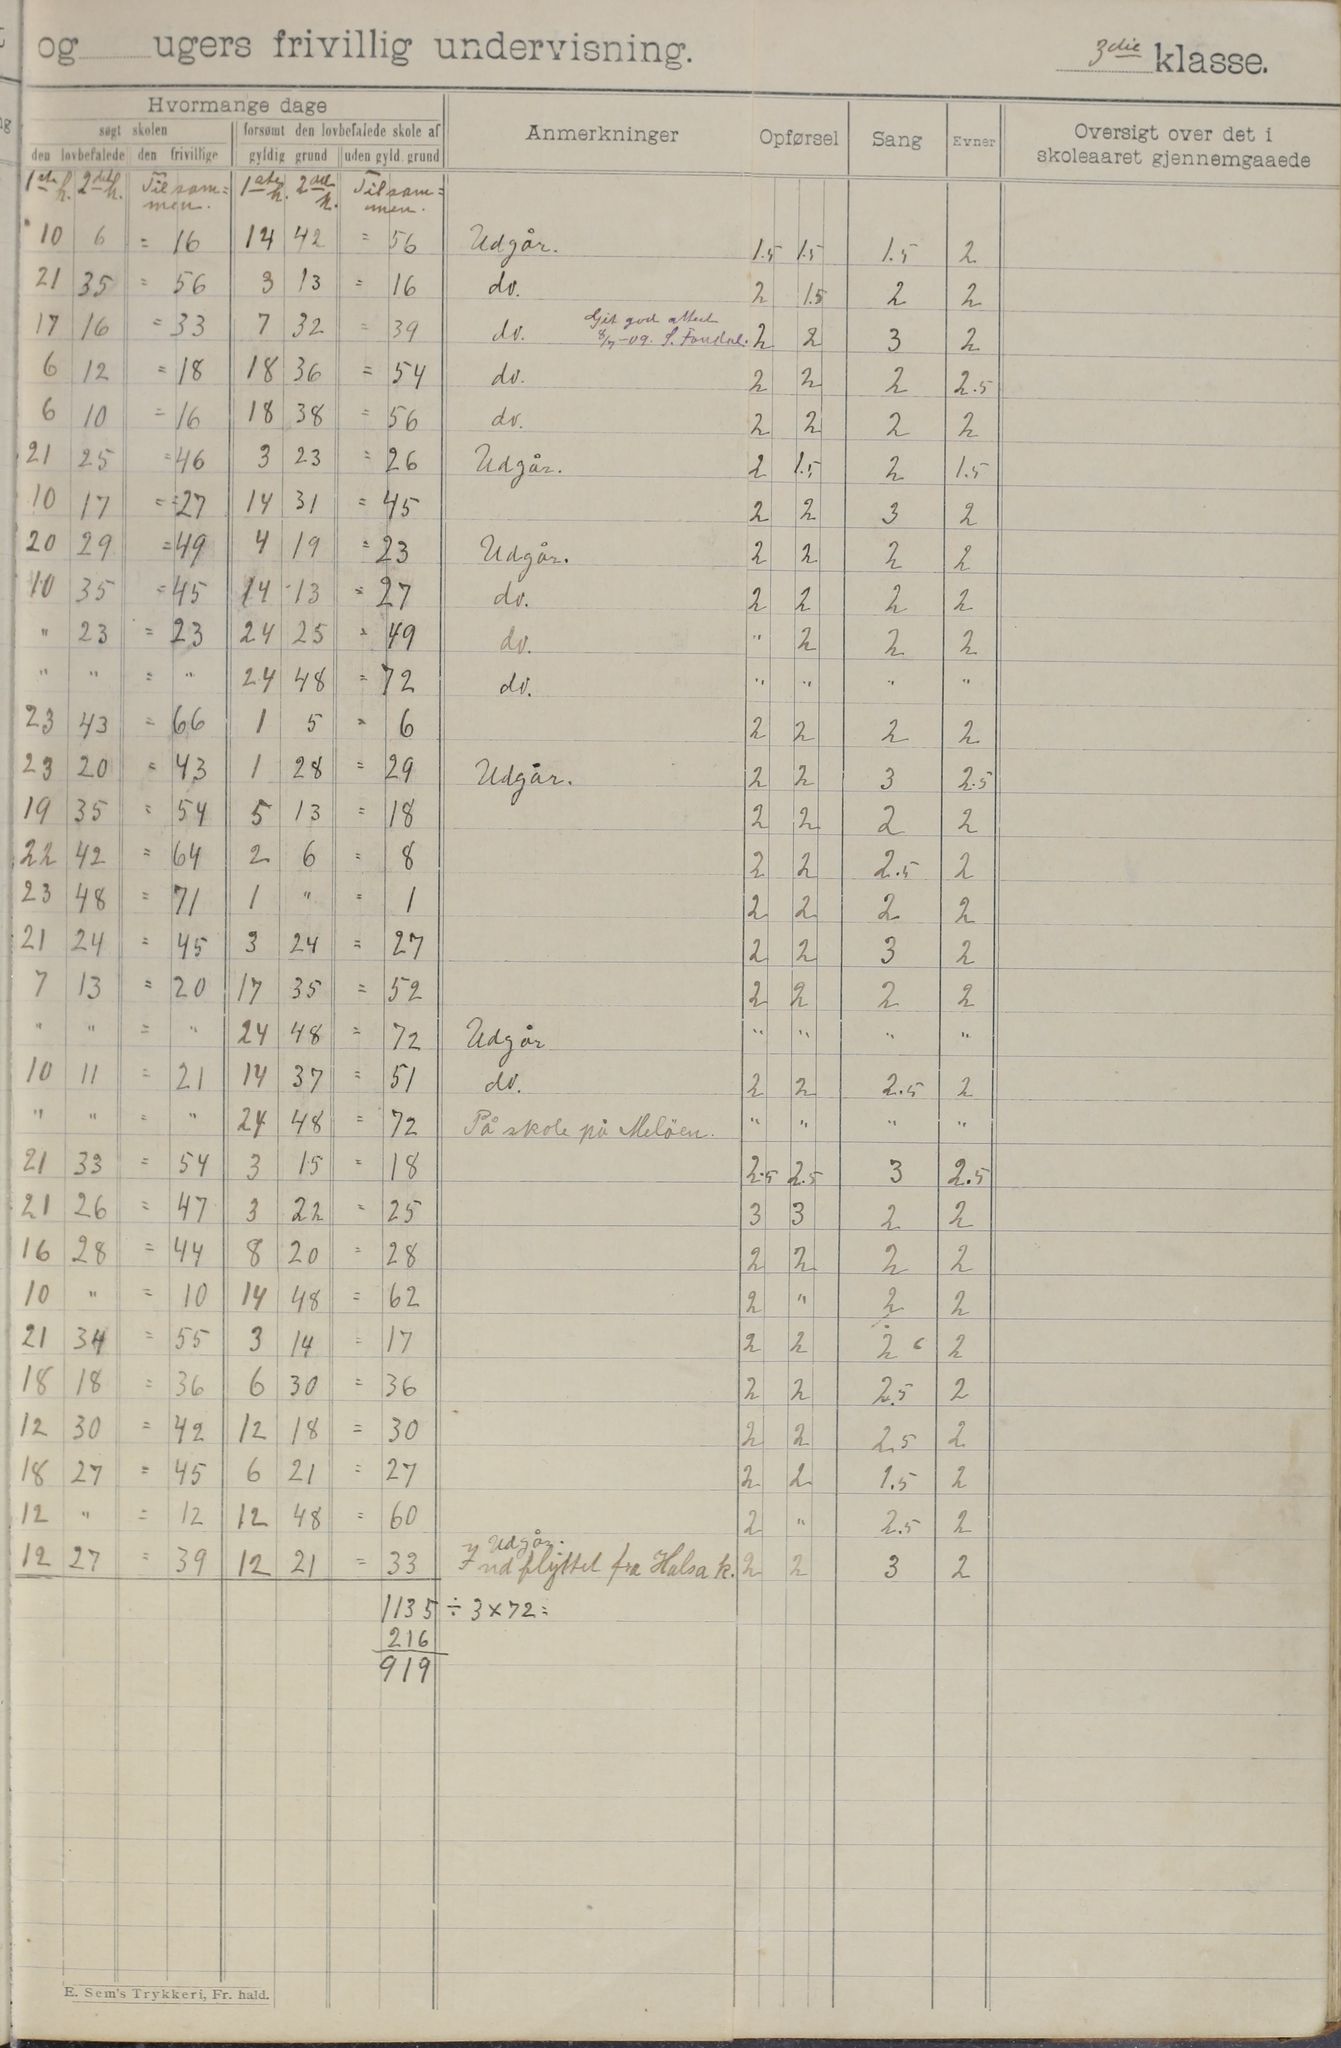 og ugers frivillig undervisning. 3die klasse.
Hvormange dage
søgt skolen forsømt den lovbefalede skole af Anmerkninger Opførsel Sang Evner Oversigt over det i
den lovbefalede den frivillige gyldig grund uden gyld. grund skoleaaret gjennemgaaede
1ste h. 2det h. Tilsam= 1ste h. 2det h. Tilsam=
men. men.
10 6 = 16 14 42 = 56 Udgår. 1.5 1.5 1.5 2
21 35 = 56 3 13 = 16 do. 2 1.5 2 2
Git god attest
17 16 = 33 7 32 = 39 do. 8/7-09. 2 2 3 2
6 12 = 18 18 36 = 54 do. 2 2 2 2.5
6 10 = 16 18 38 = 56 do. 2 2 2 2
21 25 = 46 3 23 = 26 Udgår. 2 1.5 2 1.5
10 17 = 27 14 31 = 45 2 2 3 2
20 29 = 49 4 19 = 23 Udgår. 2 2 2 2
10 35 = 45 14 13 = 27 do. 2 2 2 2
" 23 = 23 24 25 = 49 do. " 2 2 2
" " = " 24 48 = 72 do. " " " "
23 43 = 66 1 5 = 6 2 2 2 2
23 20 = 43 1 28 = 29 Udgår. 2 2 3 2.5
19 35 = 54 5 13 = 18 2 2 2 2
22 42 = 64 2 6 = 8 2 2 2.5 2
23 48 = 71 1 " = 1 2 2 2 2
21 24 = 45 3 24 = 27 2 2 3 2
7 13 = 20 17 35 = 52 2 2 2 2
" " = " 24 48 = 72 Udgår " " " "
10 11 = 21 14 37 = 51 do. 2 2 2.5 2
" " = " 24 48 = 72 På skole på Meløen. " " " "
21 33 = 54 3 15 = 18 2.5 2.5 3 2.5
21 26 = 47 3 22 = 25 3 3 2 2
16 28 = 44 8 20 = 28 2 2 2 2
10 " = 10 14 48 = 62 2 " 2 2
21 34 = 55 3 14 = 17 2 2 2 2
18 18 = 36 6 30 = 36 2 2 2.5 2
12 30 = 42 12 18 = 30 2 2 2.5 2
18 27 = 45 6 21 = 27 2 2 1.5 2
12 " = 12 12 48 = 60 2 " 2.5 2
Udgår.
12 27 = 39 12 21 = 33 Indflyttet fra Halsa k. 2 2 3 2
1135 ÷ 3 × 72 =
216
919
E. Sem's Trykkeri, Fr. hald.